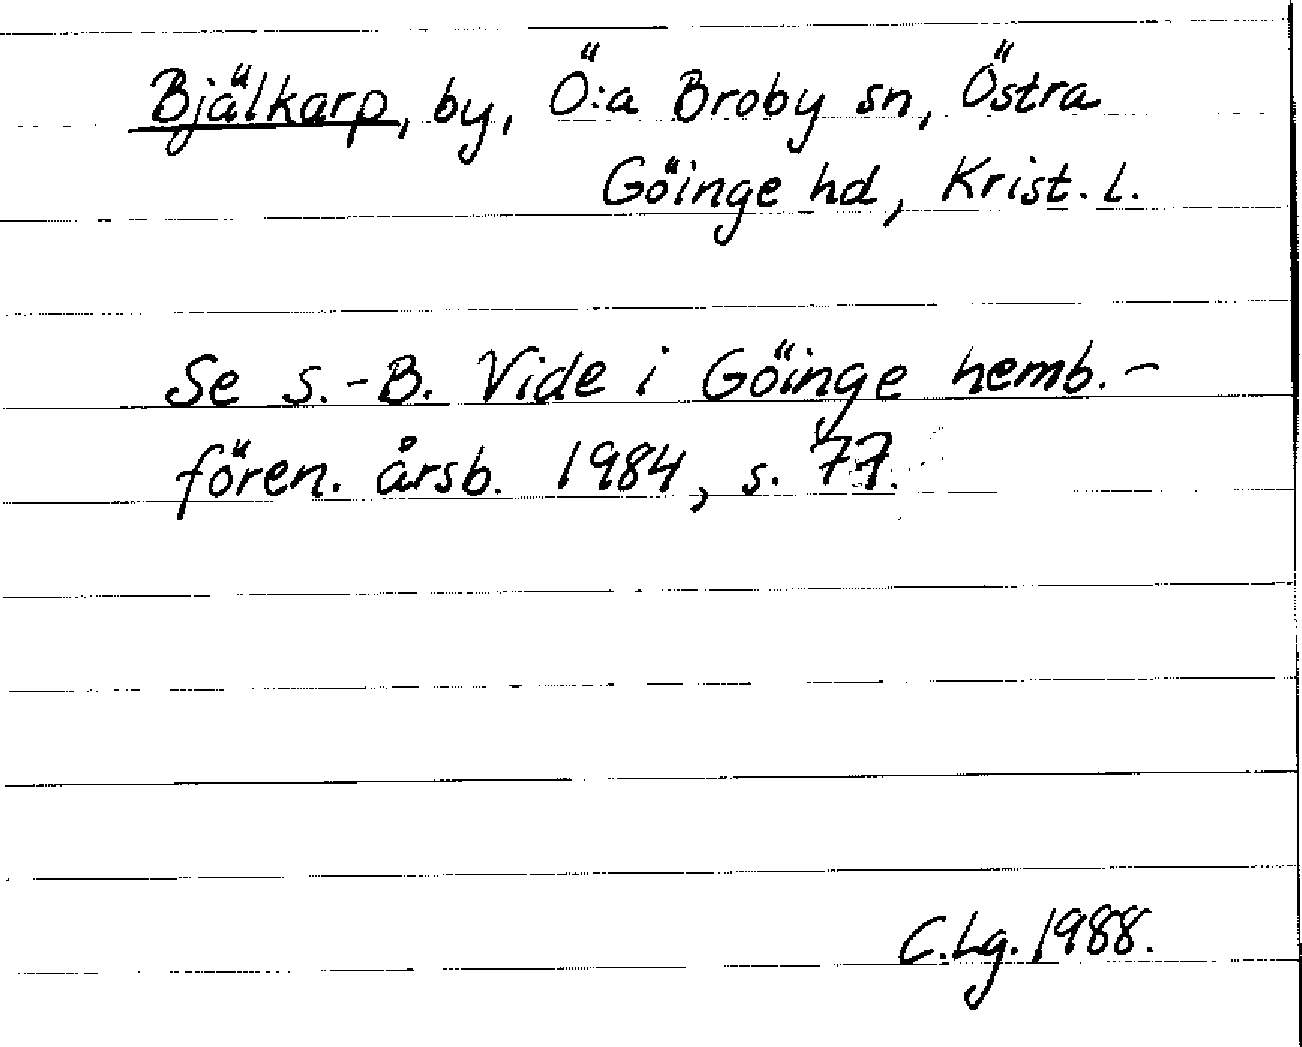 Bjälkarp, by, Ö:a Broby sn, Östra
Göinge hd, Krist. l.
Se S.-B. Vide i Göinge hemb.-
fören. årsb. 1984, s. 77.
C.Lg. 1988.